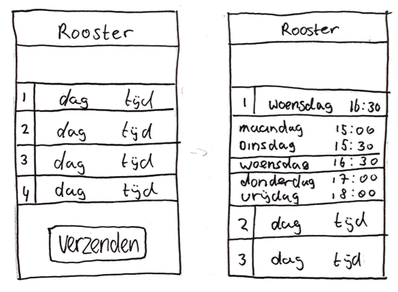 Rooster
1 dag tijd
2 dag tijd
3 dag tijd
4 dag tijd
verzenden
Rooster
1 woensdag 16:30
maandag 15:00
dinsdag 15:30
woensdag 16:30
donderdag 17:00
vrijdag 18:00
2 dag tijd
3 dag tijd